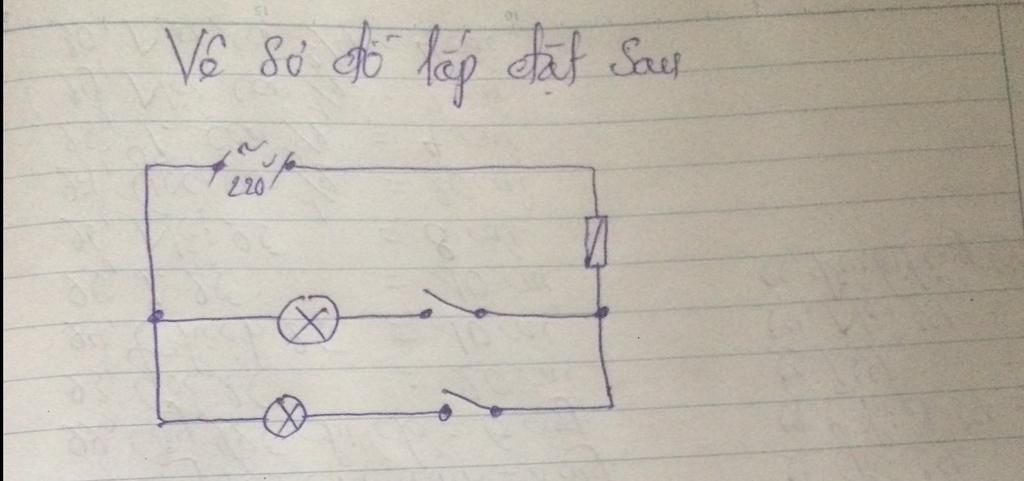 Vẽ sơ đồ lắp đặt sau
~
220